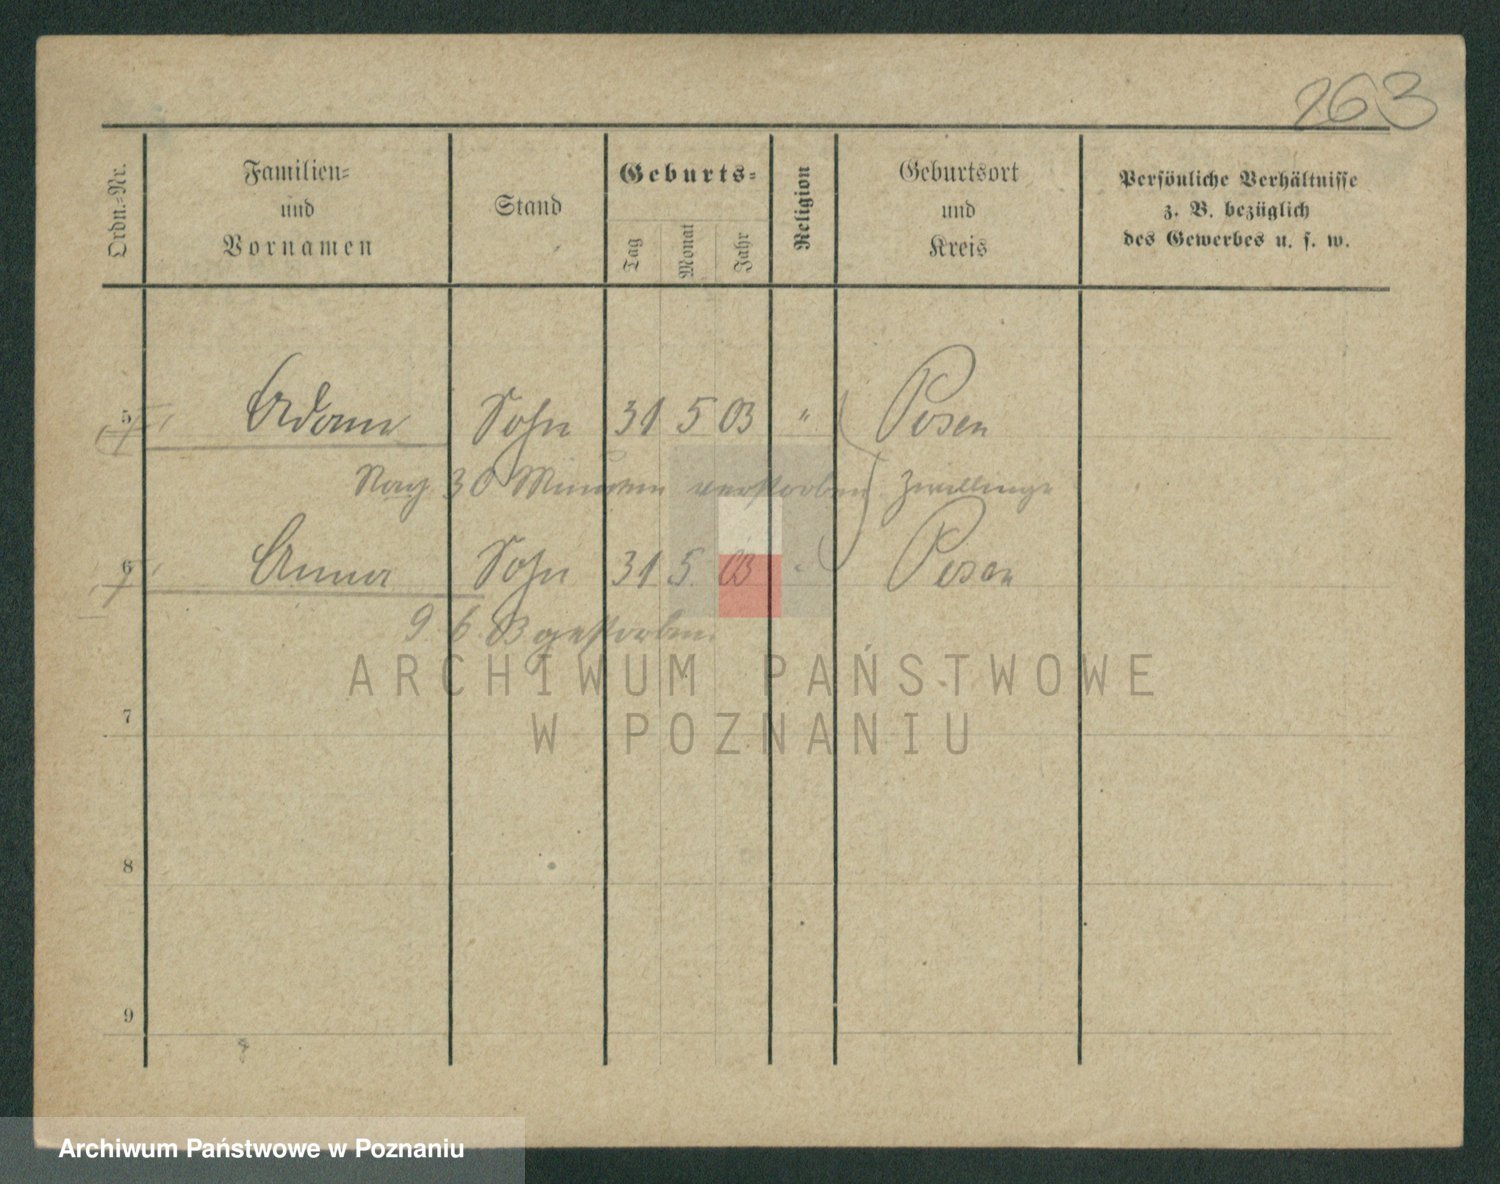 263
Ordn.-Nr.
Familien-
und
Vornamen
Stand
Geburts-
Tag
Monat
Jahr
Religion
Geburtsort
und
Kreis
Persönliche Verhältnisse
z. B. bezüglich
des Gewerbes u. s. w.
5 Adam Sohn 31 5 03 " Posen
Nach 30 Minuten verstorben Zwillinge
6 Anna Sohn 31 5 03 " Posen
9 6 03 gestorben.
ARCHIWUM PAŃSTWOWE
W POZNANIU
7
8
9
Archiwum Państwowe w Poznaniu